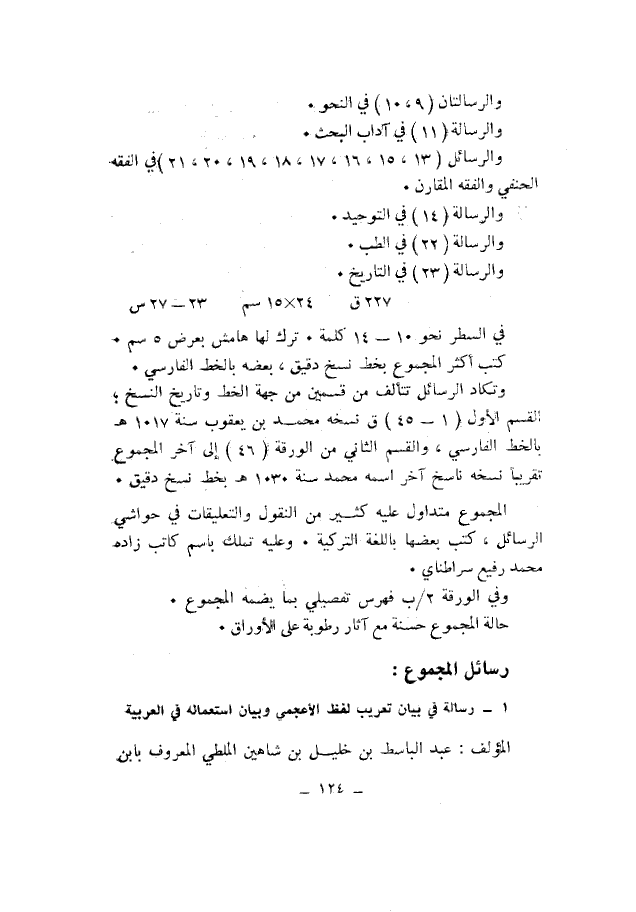 والرسالتان ( ٩ ، ١٠ ) في النحو •
والرسالة ( ١١ ) في آداب البحث •
والرسائل ( ١٣ ، ١٥ ، ١٦ ، ١٧ ، ١٨ ، ١٩ ، ٢٠ ، ٢١ ) في الفقه
الحنفي والفقه المقارن •
والرسالة ( ١٤ ) في التوحيد •
والرسالة ( ٢٢ ) في الطب •
والرسالة ( ٢٣ ) في التاريخ •
٢٢٧ ق ٢٤×١٥ سم ٢٣ – ٢٧ س
في السطر نحو ١٠ – ١٤ كلمة • ترك لها هامش بعرض ٥ سم •
كتب أكثر المجموع بخط نسخ دقيق ، بعضه بالخط الفارسي •
وتكاد الرسائل تتألف من قسمين من جهة الخط وتاريخ النسخ ؛
القسم الأول ( ١ – ٤٥ ) ق نسخه محمد بن يعقوب سنة ١٠١٧ هـ
بالخط الفارسي ، والقسم الثاني من الورقة ( ٤٦ ) إلى آخر المجموع
تقريباً نسخه ناسخ آخر اسمه محمد سنة ١٠٣٠ هـ بخط نسخ دقيق •
المجموع متداول عليه كثير من النقول والتعليقات في حواشي
الرسائل ، كتب بعضها باللغة التركية • وعليه تملك باسم كاتب زاده
محمد رفيع سراطناي •
وفي الورقة ٢/ب فهرس تفصيلي بما يضمه المجموع •
حالة المجموع حسنة مع آثار رطوبة على الأوراق •
رسائل المجموع :
١ – رسالة في بيان تعريب لفظ الأعجمي وبيان استعماله في العربية
المؤلف : عبد الباسط بن خليل بن شاهين الملطي المعروف بابن
– ١٢٤ –